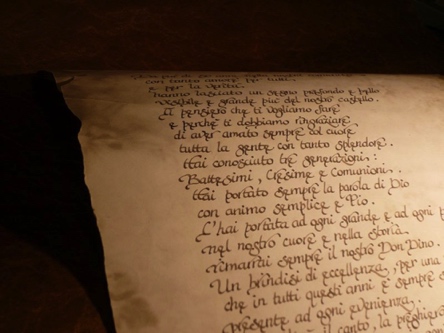 con tanto amore per tutti,
e per la verità.
hanno lasciato un segno profondo e bello
visibile e grande più del nostro castello.
Il pensiero che ti vogliamo fare
e perchè ti dobbiamo ringraziare
di aver amato sempre col cuore
tutta la gente con tanto splendore.
Hai conosciuto tre generazioni:
Battesimi, Cresime e Comunioni..
Hai portato sempre la parola di Dio
con animo semplice e Pio.
L'hai portata ad ogni grande e ad ogni
nel nostro cuore e nella storia
rimarrai sempre il nostro Don Dino.
Un brindisi di eccellenza, per una
che in tutti questi anni è sempre
presente ad ogni evenienza.
il canto la preghiera